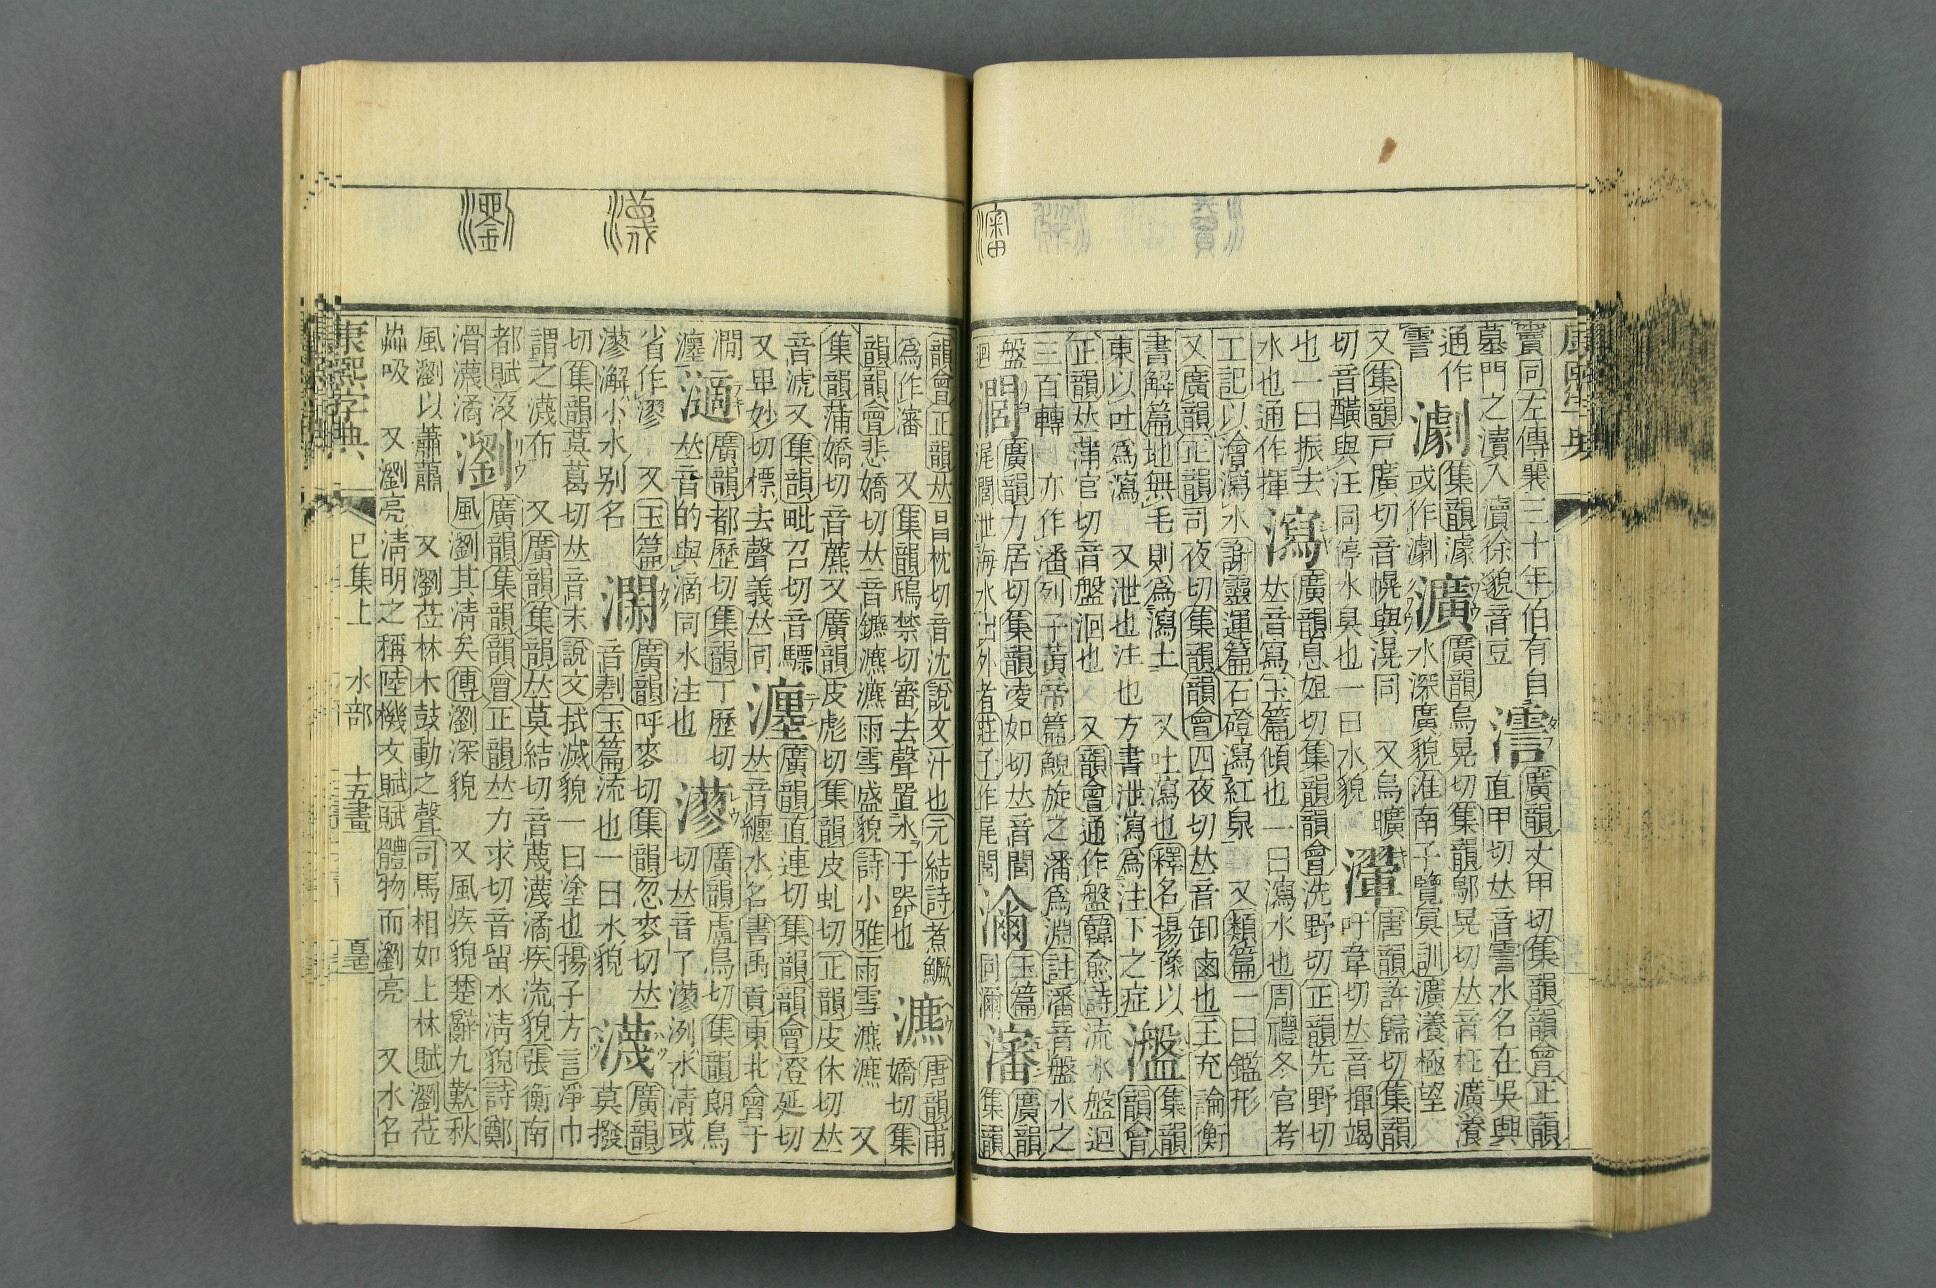 康熙字典
竇同左傳襄三十年伯有自
墓門之瀆入瀆徐貌音豆
廣韻丈甲切集韻韻會正韻
直甲切𠀤音霅水名在吳興
通作
霅
集韻澽
或作劇
瀇
廣韻烏晃切集韻鄔晃切𠀤音枉瀇瀁
水深廣貌淮南子覽冥訓瀇瀁極望
又集韻戸廣切音幌與滉同　又烏曠
切音䤑與汪同停水臭也一曰水貌
瀈
唐韻許歸切集韻
吁韋切𠀤音揮竭
也一曰振去
水也通作揮
瀉
廣韻息姐切集韻韻會洗野切正韻先野切
𠀤音寫玉篇傾也一曰瀉水也周禮冬官考
工記以澮瀉水謝靈運篇石磴瀉紅泉　又類篇一曰鑑形
又廣韻正韻司夜切集韻韻會四夜切𠀤音卸鹵也王充論衡
書解篇地無毛則爲瀉土　又吐瀉也釋名揚豫以
東以吐爲瀉　又泄也注也方書泄瀉爲注下之症
瀊
集韻
韻會
正韻𠀤蒲官切音盤洄也　又韻會通作盤韓愈詩流水盤迴
三百轉　亦作潘列子黄帝篇鯢旋之潘爲淵註潘音盤水之
盤
迴
廣韻力居切集韻凌如切𠀤音閭
尾閭泄海水出外者莊子作尾閭
玉篇
同瀰
瀋
廣韻
集韻
韻會正韻𠀤昌枕切音沈說文汁也元結詩煮鱖
爲作瀋　又集韻鴆禁切審去聲置水于器也
瀌
唐韻甫
嬌切集
韻韻會悲嬌切𠀤音鑣瀌瀌雨雪盛貌詩小雅雨雪瀌瀌　又
集韻蒲嬌切音藨又廣韻皮彪切集韻皮虬切正韻皮休切𠀤
音淲又集韻毗召切音驃
又畀妙切標去聲義𠀤同
瀍
廣韻直連切集韻韻會澄延切
𠀤音纏水名書禹貢東北會于
澗
瀍
廣韻都歷切集韻丁歷切
𠀤音的與滴同水注也
廣韻盧鳥切集韻朗鳥
切𠀤音了 洌水清或
省作漻　又玉篇
解小水别名
廣韻呼麥切集韻忽麥切𠀤
音剨玉篇流也一曰水貌
瀎
廣韻
莫撥
切集韻莫葛切𠀤音末說文拭滅貌一曰塗也揚子方言淨巾
謂之瀎布　又廣韻集韻𠀤莫結切音蔑瀎潏疾流貌張衡南
都賦沒
滑瀎潏
瀏
廣韻集韻韻會正韻𠀤力求切音留水清貌詩鄭
風瀏其清矣傳瀏深貌　又風疾貌楚辭九歎秋
風瀏以蕭蕭　又瀏莅林木鼓動之聲司馬相如上林賦瀏莅
芔吸　又瀏亮清明之稱陸機文賦賦體物而瀏亮　又水名
康熙字典　巳集上　水部　十五畫